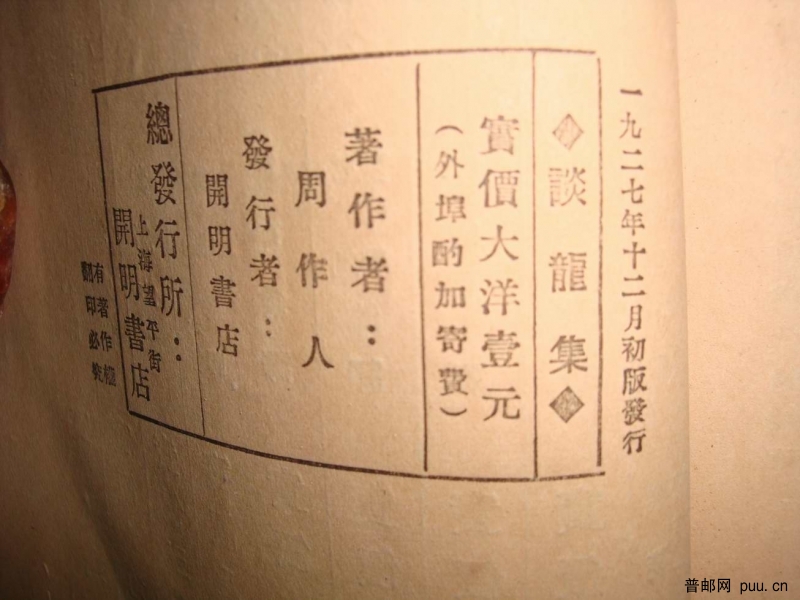 一九二七年十二月初版發行
談龍集
實價大洋壹元
（外埠酌加寄費）
著作者：
周作人
發行者：
開明書店
總發行所：
上海望平街
開明書店
有著作權
翻印必究
普邮网 puu.cn